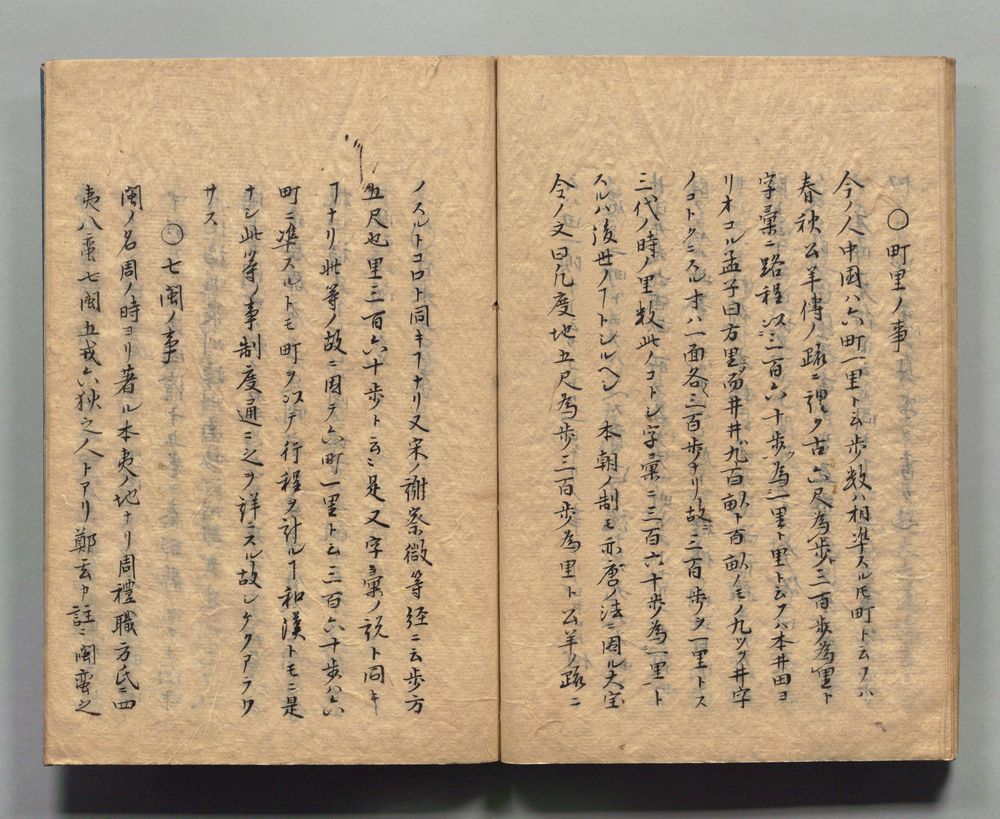 〇町里ノ事
今ノ人中國ハ六町一里ト云歩数ハ相準スル𪜈町ト云フハ
春秋公羊傳ノ疏ニ禮ク古六尺為歩三百歩為里ト
字彙ニ路程以三百六十歩為一里ト里ト云フハ本井田ヨ
リオコル孟子曰方里而井井九百畝ト百畝ノモノ九ツヲ井字
ノコトクニスル寸ハ一面各三百歩ナリ故ニ三百歩ヲ一里トス
三代ノ時ノ里数此ノコトシ字彙ニ三百六十歩為一里ト
スルハ後世ノヿトシルヘシ本朝ノ制モ亦唐ノ法ニ因ル大宝
令ノ文曰凡度地五尺為歩三百歩為里ト公羊ノ疏ニ
ノスルトコロト同キヿナリ又宋ノ謝察微等経ニ云歩方
五尺也里三百六十歩ト云ニ是又字彙ノ説ト同キ
ヿナリ此等ノ故ニ因テ六町一里ト云三百六十歩ハ六
町ニ準スルトモ町ヲ以テ行程ヲ計ルヿ和漢トモニ是
ナシ此等ノ事制度通ニ之ヲ詳ニスル故シケクアラワ
サス
〇七閩ノ事
閩ノ名周ノ時ヨリ著ル本夷ノ地ナリ周禮職方氏ニ四
夷八蛮七閩五戎六狄之人トアリ鄭玄カ註ニ閩蛮之